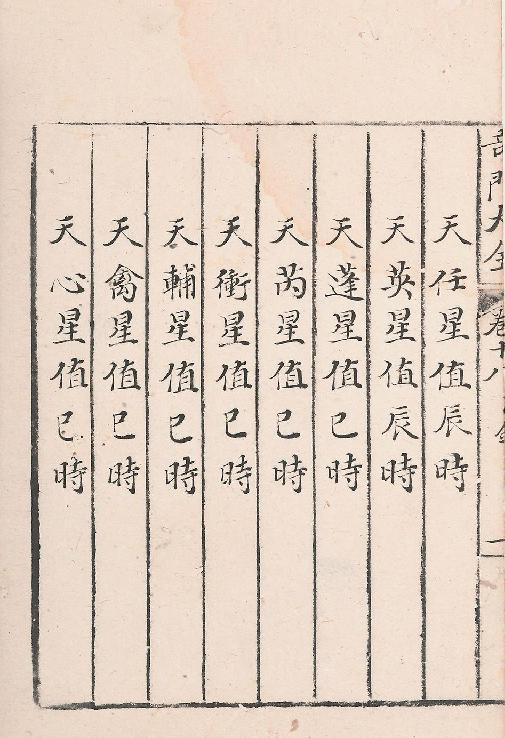 門大全
卷十八
一
天任星值辰時
天英星值辰時
天蓬星值巳時
天芮星值巳時
天衝星值巳時
天輔星值巳時
天禽星值巳時
天心星值巳時